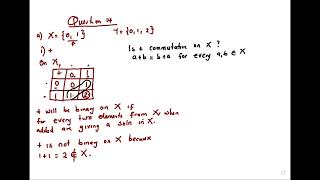 Question 4
a) X = {0, 1}   Y = {0, 1, 2}
i) +
On X,
+ 0 1
0 0 1
1 1 2
Is + commutative on X ?
a+b = b+a for every a,b ∈ X
+ will be binary on X if
for every two elements from X, when
added are giving a soln in X.
+ is not binary on X because
1+1 = 2 ∉ X.